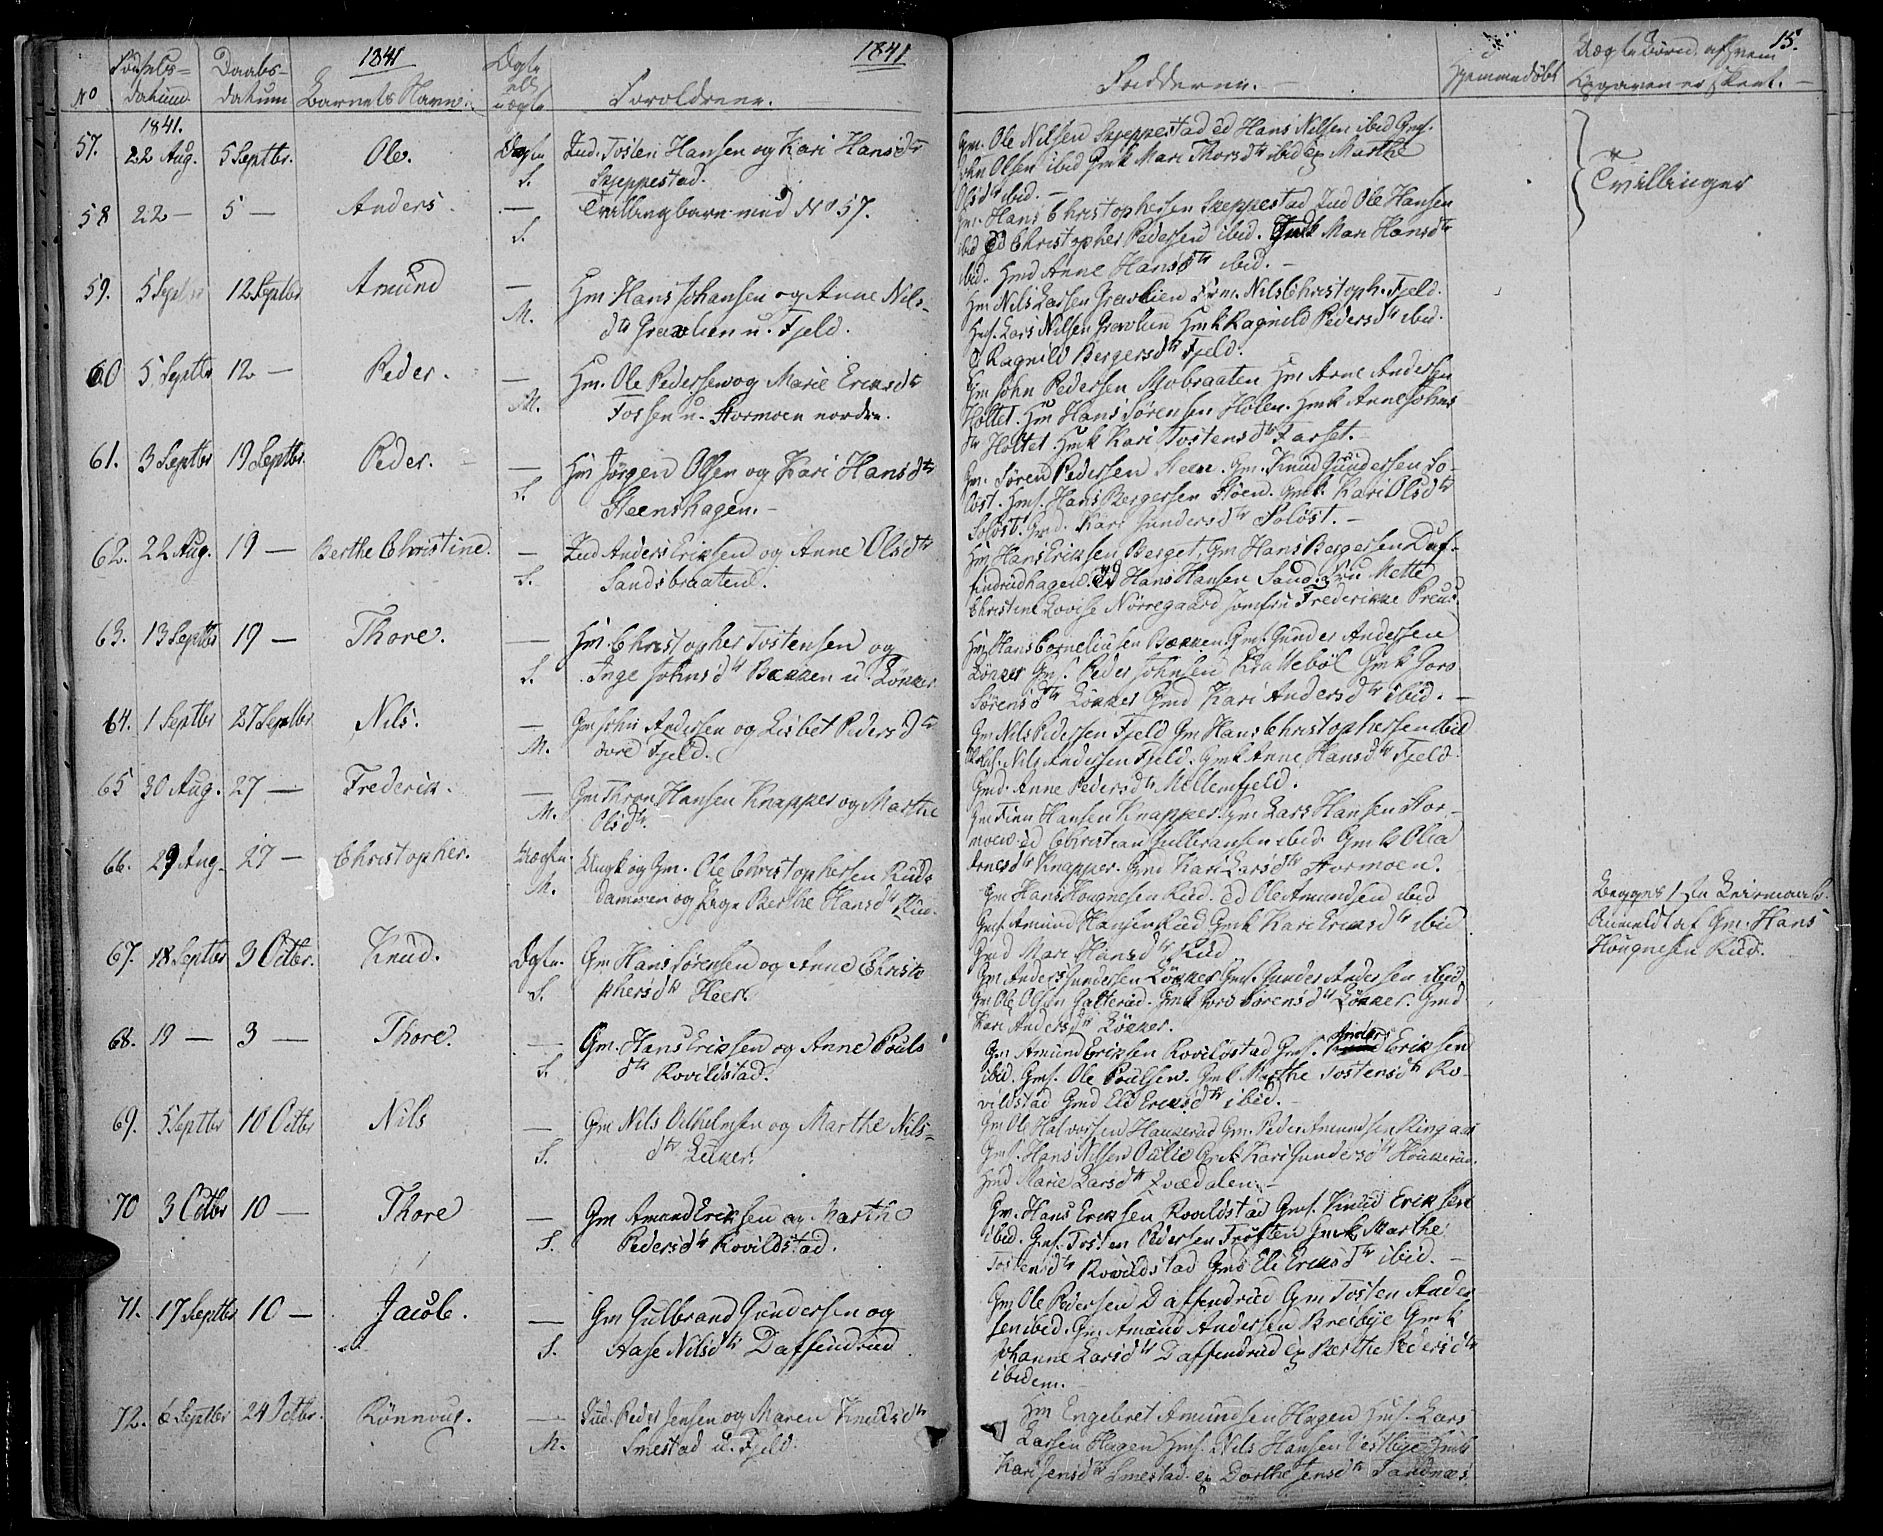 1841
1841
15.
No
Fødsels-
datum.
Daabs-
datum
Barnets Navn.
Ægte
ell.
uægte
Foroldrene.
Fadderne.
Hjemmedøbt
Uægte Børn. af hvem
Opgaven er skeet.
1841.
57. 22 Aug. 5 Septbr. Ole. Ægte Ind. Tosten Hansen og Kari Hansdtr
S. Skjeppestad.
Gm. Ole Nilsen Skjeppestad ed Hans Nilsen ibid Gms.
John Olsen ibid Gmk Mari Thorsdtr ibid ep Marthe
Olsdtr ibid.
Tvillinger
58 22 — 5 — Anders. — Tvillingbarn med No 57.
S.
Gm. Hans Christophersen Skeppestad Ind Ole Hansen
ibid ed Christopher Pedersen ibid. Gmk Mari Hansdtr
ibid. Hmd Anne Hansdtr ibid. —
59. 5 Septbr 12 Septbr Amund — Hm. Hans Johansen og Anne Nils-
M. dtr Gravlien u. Fjeld.
Hm Nils Larsen Gravlien Hm. Nils Christoph. Fjeld.
Hms. Lars Nilsen Gravlien Hmk Ragnild Pedersdtr ibid.
Ragnild Bergersdtr Fjeld.
60 5 Septbr 12 — Peder. — Hm. Ole Pedersen og Marie Eriksdtr
M. Fossen u. Stormoen nordre.
Hm John Pedersen Mobraaten Hm Arne Andersen
Holtet. Hm Hans Sørensen Holen. Hmk Anne Johns
dtr Holtet. Hmk Kari Tostensdtr Farset. —
61. 3 Septbr 19 Septbr. Peder. — Hm Jørgen Olsen og Kari Hansdtr
S. Steenshagen. —
Gm. Søren Pedersen Steen. Gm. Knud Gundersen So-
löst. Hms. Hans Bergersen Stöen. Gmk. Kari Olsdtr
Solöst. Gmd. Kari Gundersdtr Solöst. —
62. 22 Aug. 19 — Berthe Christine. — Ind Anders Eriksen og Anne Olsdtr
S. Sandsbraaten.
Hm Hans Eriksen Berget, Gm Hans Bergersen Daf-
findrudhagen Hans Hansen Sand, Fru Mette
Christine Lovise Nörregaard Jomfru Frederikke Preus.
63. 13 Septbr 19 — Thore. — Hm. Christopher Tostensen og
S. Inge Johnsdtr Bækken u. Lökker
Hm Hans Corneliusen Bækken Gms. Gunder Andersen
Lökker Gms. Peder Johnsen Krattebøl Gmk Goro
Sørensdtr Lökker Gmd Kari Andersdtr ibid. —
64. 1 Septbr 27 Septbr. Nils. — Gm John Andersen og Lisbet Pedersdtr
M. övre Fjeld.
Gm Nils Pedersen Fjeld Gm Hans Christophersen ibid
Gms. Nils Andersen Fjeld. Gmk Anne Hansdtr Fjeld.
Gmd. Anne Pedersdtr Mellemfjeld.
65 30 Aug. 27 — Frederik. — Gm Thron Hansen Knapper og Marthe
M. Olsdtr.
Gm Finn Hansen Knapper Gm Lars Hansen Stor-
moen ed Christian Gulbransen ibid. Gmk Olia
Arnesdtr Knapper. Gmd Kari Larsdtr Stormoen.
66. 29 Aug. 27 — Christopher. Uægte. Ungk og Gm. Ole Christophersen Ruds
M. dammen og Pige Berthe Hansdtr Rud.
Gm Hans Hougnesen Rud. ed Ole Amundsen ibid
Gms. Amund Hansen Rud Gmk Kari Eriksdtr ibid
Gmd Mari Hansdtr Rud
Begges 1ste Leiermaal.
Anmeldt af Gm. Hans
Hougnesen Rud.
67. 18 Septbr 3 Octbr. Knud. Ægte. Gm Hans Sørensen og Anne Christo
S. phersdtr Heer.
Gm Anders Gundersen Lökker Gms. Gunder Andersen ibid
Gm Ole Olsen Galterud. Gmk Goro Sørensdtr Lökker. Gmd
Kari Andersdtr Lökker.
68. 19 — 3 — Thore. — Gm. Hans Eriksen og Anne Pouls
S. dtr Rovildstad.
Gm Amund Eriksen Rovildstad Gms. Anders Eriksen
ibid. Gms. Ole Poulsen. Gmk Marthe Tostensdtr Ro-
vildstad Gmd Eli Eriksdtr ibid. —
69. 5 Septbr 10 Octbr Nils — Gm Nils Vilhelmsen og Marthe Nils-
S. dtr
Gm Ole Halvorsen Haukerud Gm. Peder Amundsen Ringaas
Gms. Hans Nilsen Gmk Kari Gundersdtr Houkerud.
Hmd Marie Larsdtr Kvædalen. —
70 3 Octbr 10 — Thore — Gm Amund Eriksen og Marthe
S. Pedersdtr Rovildstad.
Gm. Hans Eriksen Rovildstad Gms. Knud Eriksen
ibid. Gms. Tosten Pedersen Trøften Gmk Marthe
Tostensdtr Rovildstad Gmd Eli Eriksdtr ibid. —
71. 17 Septbr 10 — Jacob. — Gm Gulbrand Gundersen og
S. Aase Nilsdtr Daffindrud.
Gm Ole Pedersen Daffendrud Gm Tosten Ander
sen ibid. Gm Amund Andersen Bresbye Gmk
Johanne Larsdtr Daffendrud ep Berthe Pedersdtr
ibidem.
72. 6 Septbr 24 Octbr. Rönnoug. — Ind. Peder Jensen og Maren Knudsdtr
M. Smestad u. Fjeld.
Hm Engebret Amundsen Hagen Hms. Lars
Larsen Hagen Hms. Nils Hansen Vestbye Hmk
Kari Jensdtr Smestad. ep Dorthe Jensdtr Sandnæs.